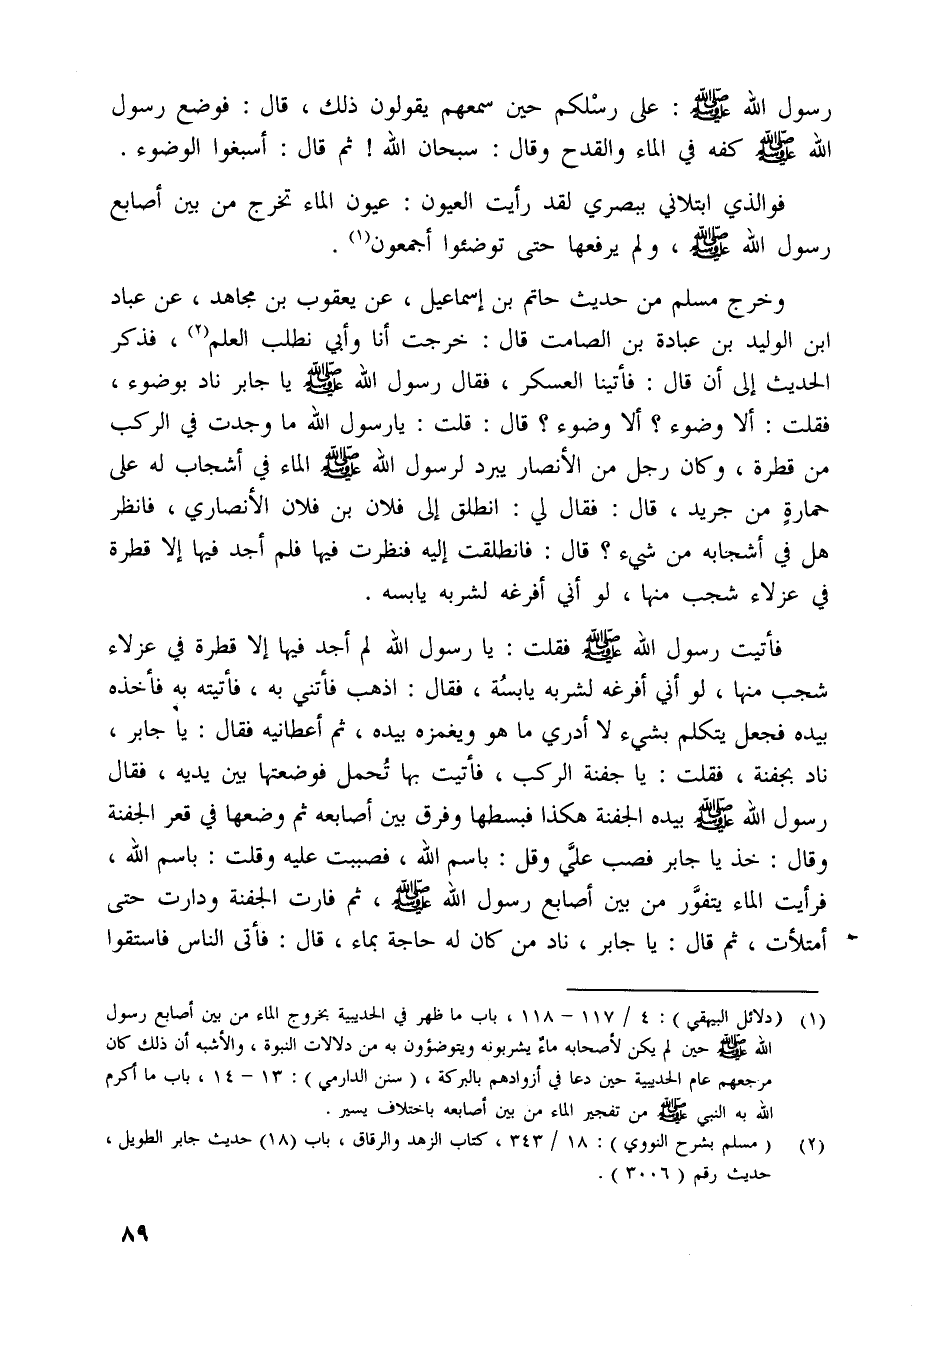 رسول الله ﷺ : على رسْلكم حين سمعهم يقولون ذلك ، قال : فوضع رسول
الله ﷺ كفه في الماء والقدح وقال : سبحان الله ! ثم قال : أسبغوا الوضوء .
فوالذي ابتلاني ببصري لقد رأيت العيون : عيون الماء تخرج من بين أصابع
رسول الله ﷺ ، ولم يرفعها حتى توضئوا أجمعون(١) .
وخرج مسلم من حديث حاتم بن إسماعيل ، عن يعقوب بن مجاهد ، عن عباد
ابن الوليد بن عبادة بن الصامت قال : خرجت أنا وأبي نطلب العلم(٢) ، فذكر
الحديث إلى أن قال : فأتينا العسكر ، فقال رسول الله ﷺ يا جابر ناد بوضوء ،
فقلت : ألا وضوء ؟ ألا وضوء ؟ قال : قلت : يارسول الله ما وجدت في الركب
من قطرة ، وكان رجل من الأنصار يبرد لرسول الله ﷺ الماء في أشجاب له على
حمارةٍ من جريد ، قال : فقال لي : انطلق إلى فلان بن فلان الأنصاري ، فانظر
هل في أشجابه من شيء ؟ قال : فانطلقت إليه فنظرت فيها فلم أجد فيها إلا قطرة
في عزلاء شجب منها ، لو أني أفرغه لشربه يابسه .
فأتيت رسول الله ﷺ فقلت : يا رسول الله لم أجد فيها إلا قطرة في عزلاء
شجب منها ، لو أني أفرغه لشربه يابسُة ، فقال : اذهب فأتني به ، فأتيته به فأخذه
بيده فجعل يتكلم بشيء لا أدري ما هو ويغمزه بيده ، ثم أعطانيه فقال : يا جابر ،
ناد بجفنة ، فقلت : يا جفنة الركب ، فأتيت بها تُحمل فوضعتها بين يديه ، فقال
رسول الله ﷺ بيده الجفنة هكذا فبسطها وفرق بين أصابعه ثم وضعها في قعر الجفنة
وقال : خذ يا جابر فصب عليَّ وقل : باسم الله ، فصببت عليه وقلت : باسم الله ،
فرأيت الماء يتفوَّر من بين أصابع رسول الله ﷺ ، ثم فارت الجفنة ودارت حتى
أمتلأت ، ثم قال : يا جابر ، ناد من كان له حاجة بماء ، قال : فأتى الناس فاستقوا
(١) (دلائل البيهقي ) : ٤ / ١١٧ – ١١٨ ، باب ما ظهر في الحديبية بخروج الماء من بين أصابع رسول
الله ﷺ حين لم يكن لأصحابه ماءٌ يشربونه ويتوضؤون به من دلالات النبوة ، والأشبه أن ذلك كان
مرجعهم عام الحديبية حين دعا في أزوادهم بالبركة ، ( سنن الدارمي ) : ١٣ – ١٤ ، باب ما أكرم
الله به النبي ﷺ من تفجير الماء من بين أصابعه باختلاف يسير .
(٢) ( مسلم بشرح النووي ) : ١٨ / ٣٤٣ ، كتاب الزهد والرقاق ، باب (١٨) حديث جابر الطويل ،
حديث رقم ( ٣٠٠٦ ) .
٨٩